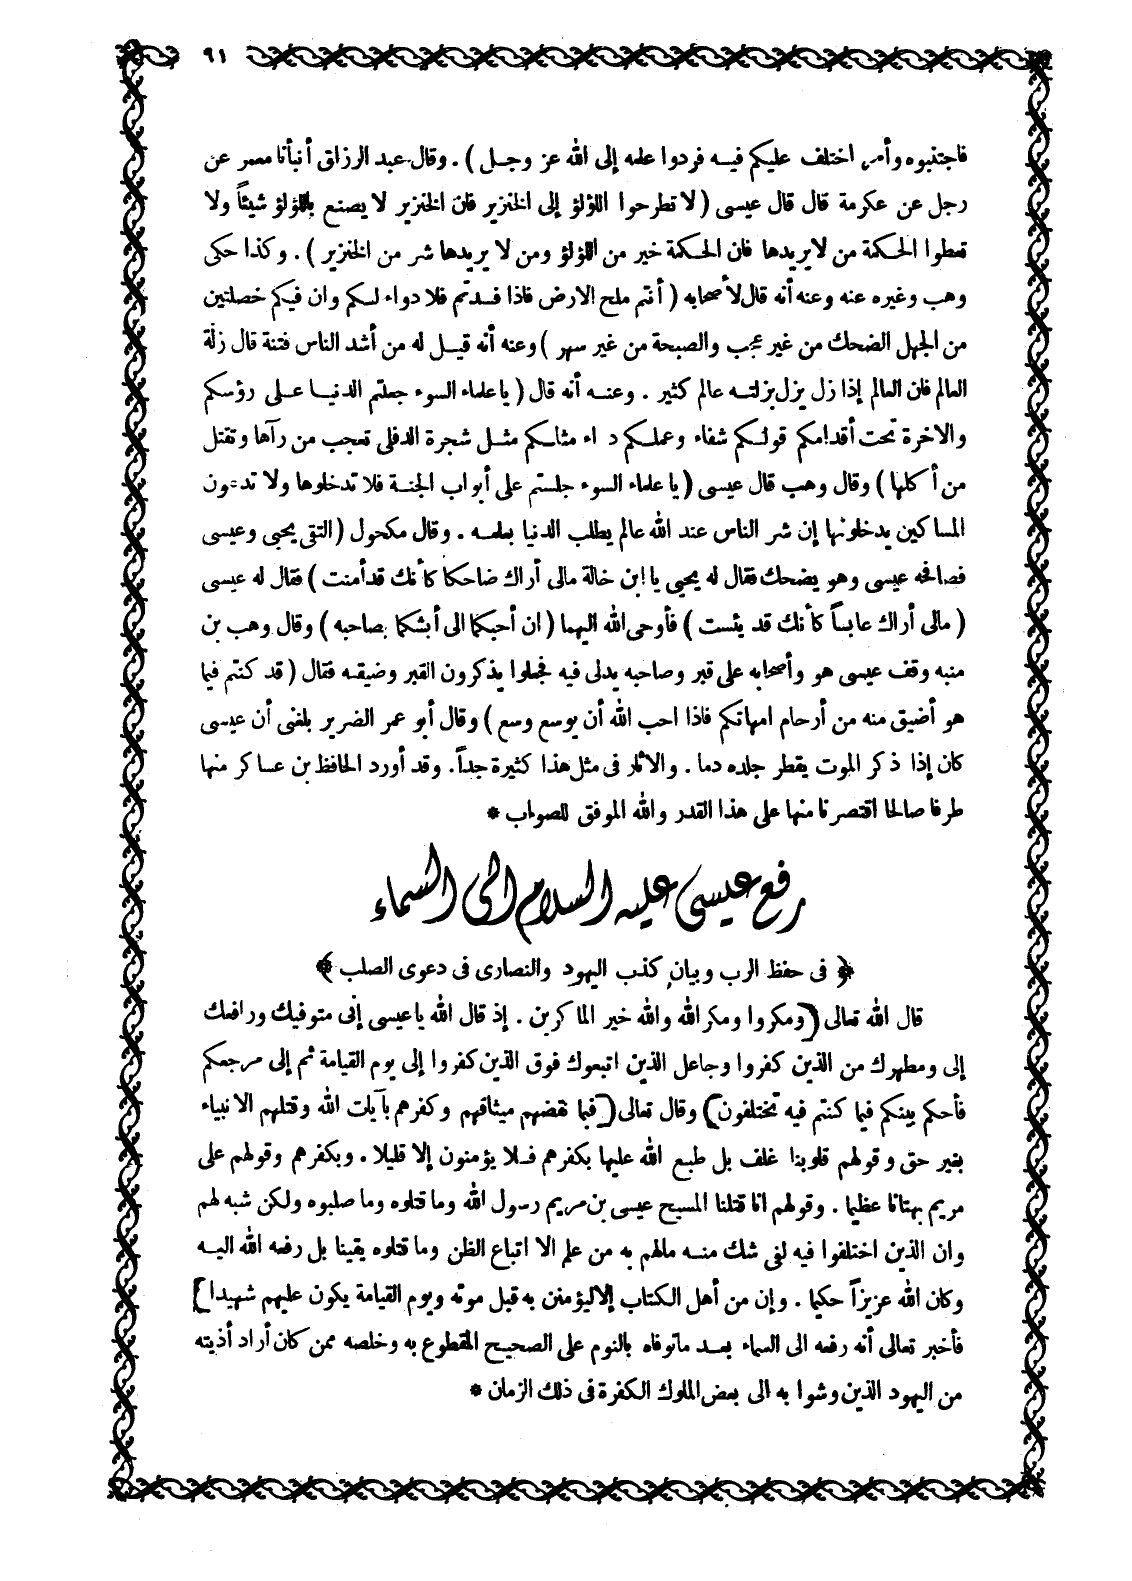 ٩١
فاجتنبوه وأمر اختلف عليكم فيه فردوا علمه إلى الله عز وجل ) . وقال عبد الرزاق أنبأنا معمر عن
رجل عن عكرمة قال قال عيسى ( لا تطرحوا اللؤلؤ إلى الخنزير فان الخنزير لا يصنع باللؤلؤ شيئاً ولا
تعطوا الحكمة من لا يريدها فان الحكمة خير من اللؤلؤ ومن لا يريدها شر من الخنزير ) . وكذا حكى
وهب وغيره عنه وعنه أنه قال لأصحابه ( أنتم ملح الارض فاذا فسدتم فلا دواء لكم وان فيكم خصلتين
من الجهل الضحك من غير عجب والصبحة من غير سهر ) وعنه أنه قيل له من أشد الناس فتنة قال زلة
العالم فان العالم إذا زل يزل بزلته عالم كثير . وعنه أنه قال ( يا علماء السوء جعلتم الدنيا على رؤسكم
والاخرة تحت أقدامكم قولكم شفاء وعملكم داء مثلكم مثل شجرة الدفلى تعجب من رآها وتقتل
من أكلها ) وقال وهب قال عيسى ( يا علماء السوء جلستم على أبواب الجنة فلا تدخلوها ولا تدعون
المساكين يدخلونها إن شر الناس عند الله عالم يطلب الدنيا بعلمه . وقال مكحول ( التقى يحيى وعيسى
فصافحه عيسى وهو يضحك فقال له يحيى يا ابن خالة مالى أراك ضاحكا كأنك قد أمنت ) فقال له عيسى
( مالى أراك عابساً كأنك قد يئست ) فأوحى الله اليهما ( ان أحبكما الى أبشكما بصاحبه ) وقال وهب بن
منبه وقف عيسى هو وأصحابه على قبر وصاحبه يدلى فيه فجعلوا يذكرون القبر وضيقه فقال ( قد كنتم فيما
هو أضيق منه من أرحام امهاتكم فاذا احب الله أن يوسع وسع ) وقال أبو عمر الضرير بلغنى أن عيسى
كان إذا ذكر الموت يقطر جلده دما . والاثار فى مثل هذا كثيرة جداً . وقد أورد الحافظ بن عساكر منها
طرفا صالحا اقتصرنا منها على هذا القدر والله الموفق للصواب *
رفع عيسى عليه السلام الى السماء
﴿ فى حفظ الرب وبيان كذب اليهود والنصارى فى دعوى الصلب ﴾
قال الله تعالى ( ومكروا ومكر الله والله خير الماكرين . إذ قال الله يا عيسى إنى متوفيك ورافعك
إلى ومطهرك من الذين كفروا وجاعل الذين اتبعوك فوق الذين كفروا إلى يوم القيامة ثم إلى مرجعكم
فأحكم بينكم فيما كنتم فيه تختلفون ) وقال تعالى ( فبما نقضهم ميثاقهم وكفرهم بآيات الله وقتلهم الانبياء
بغير حق وقولهم قلوبنا غلف بل طبع الله عليها بكفرهم فلا يؤمنون إلا قليلا . وبكفرهم وقولهم على
مريم بهتانا عظيما . وقولهم انا قتلنا المسيح عيسى بن مريم رسول الله وما قتلوه وما صلبوه ولكن شبه لهم
وان الذين اختلفوا فيه لفى شك منه مالهم به من علم الا اتباع الظن وما قتلوه يقينا بل رفعه الله اليه
وكان الله عزيزاً حكيما . وإن من أهل الكتاب إلا ليؤمنن به قبل موته ويوم القيامة يكون عليهم شهيدا )
فأخبر تعالى أنه رفعه الى السماء بعد ماتوفاه بالنوم على الصحيح المقطوع به وخلصه ممن كان أراد أذيته
من اليهود الذين وشوا به الى بعض الملوك الكفرة فى ذلك الزمان *